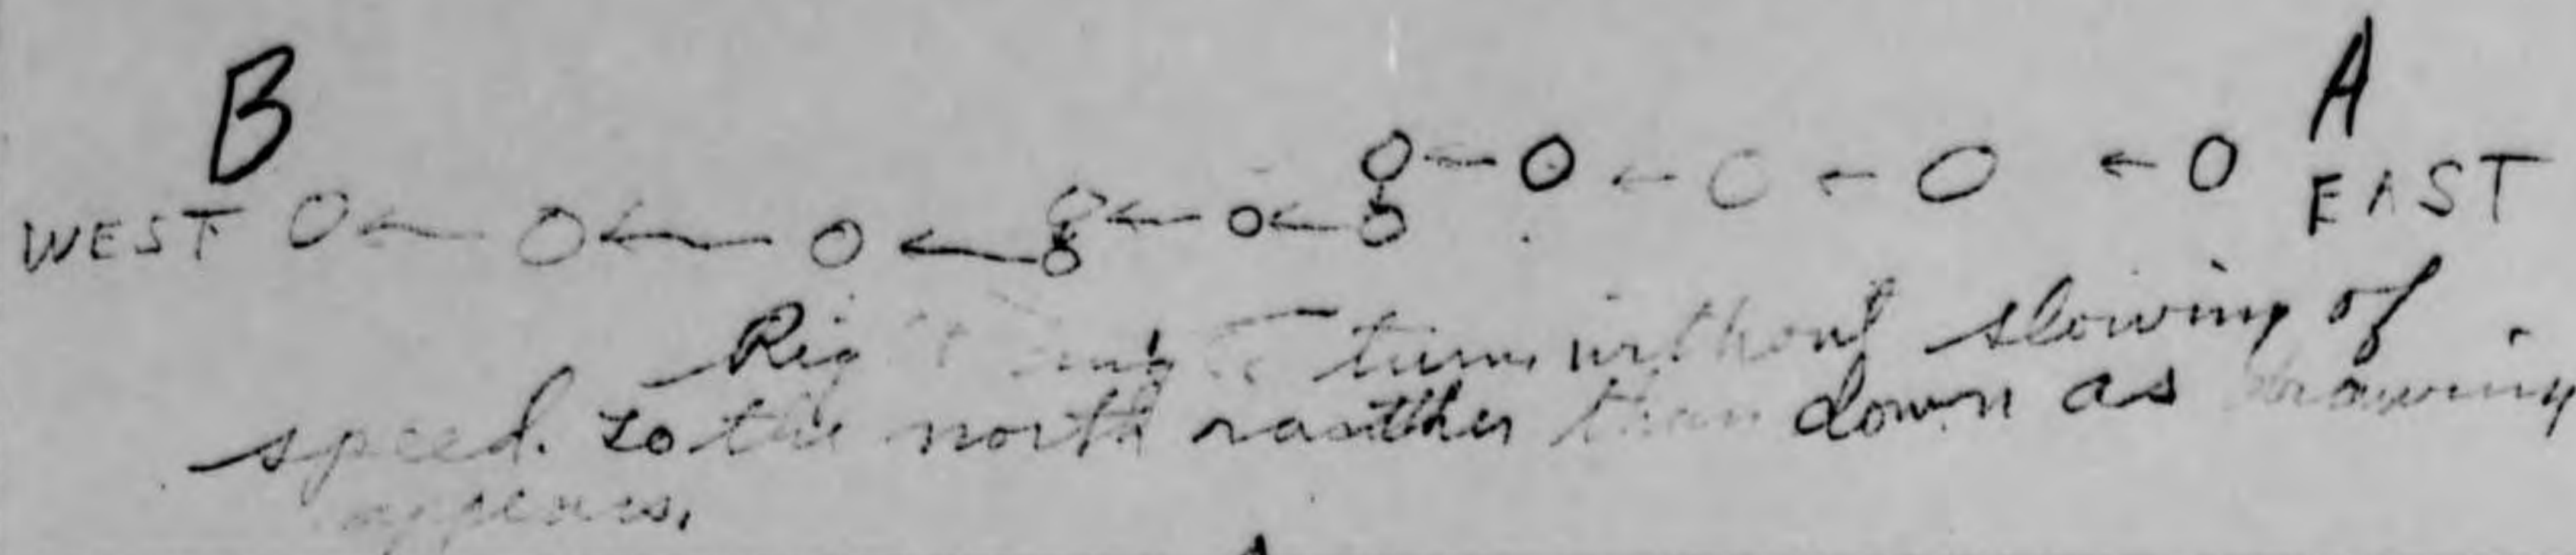 B A
WEST EAST
Right angle turn without slowing of
speed. to the north raather than down as drawing
appears.